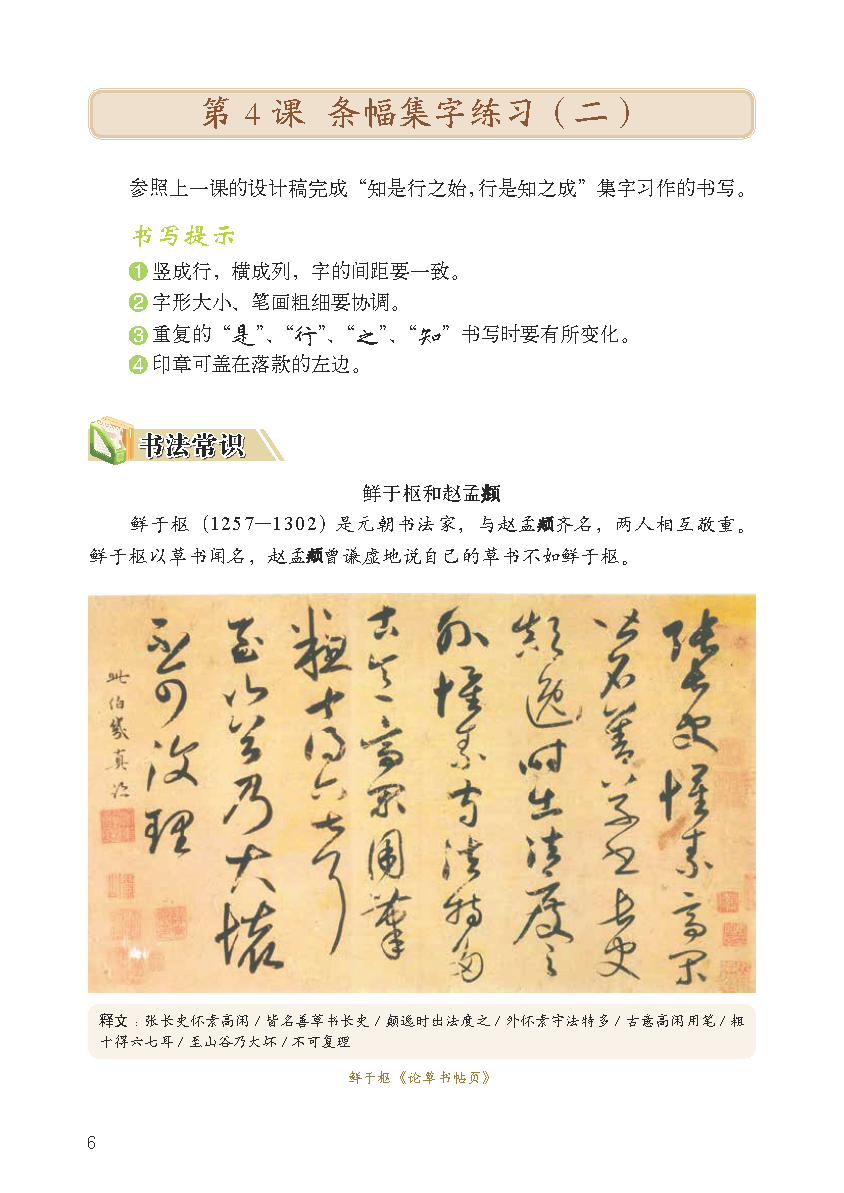 第 4 课 条幅集字练习（二）
参照上一课的设计稿完成“知是行之始，行是知之成”集字习作的书写。
书写提示
1 竖成行，横成列，字的间距要一致。
2 字形大小、笔画粗细要协调。
3 重复的“是”、“行”、“之”、“知”书写时要有所变化。
4 印章可盖在落款的左边。
书法常识
鲜于枢和赵孟𫖯
鲜于枢（1257—1302）是元朝书法家，与赵孟𫖯齐名，两人相互敬重。
鲜于枢以草书闻名，赵孟𫖯曾谦虚地说自己的草书不如鲜于枢。
張長史懷素高閑
皆名善草書長史
顛逸時出法度之
外懷素守法特多
古意高閑用筆
粗十得六七耳
至山谷乃大壞
不可復理
此伯幾真迹
释文：张长史怀素高闲 / 皆名善草书长史 / 颠逸时出法度之 / 外怀素守法特多 / 古意高闲用笔 / 粗
十得六七耳 / 至山谷乃大坏 / 不可复理
鲜于枢《论草书帖页》
6